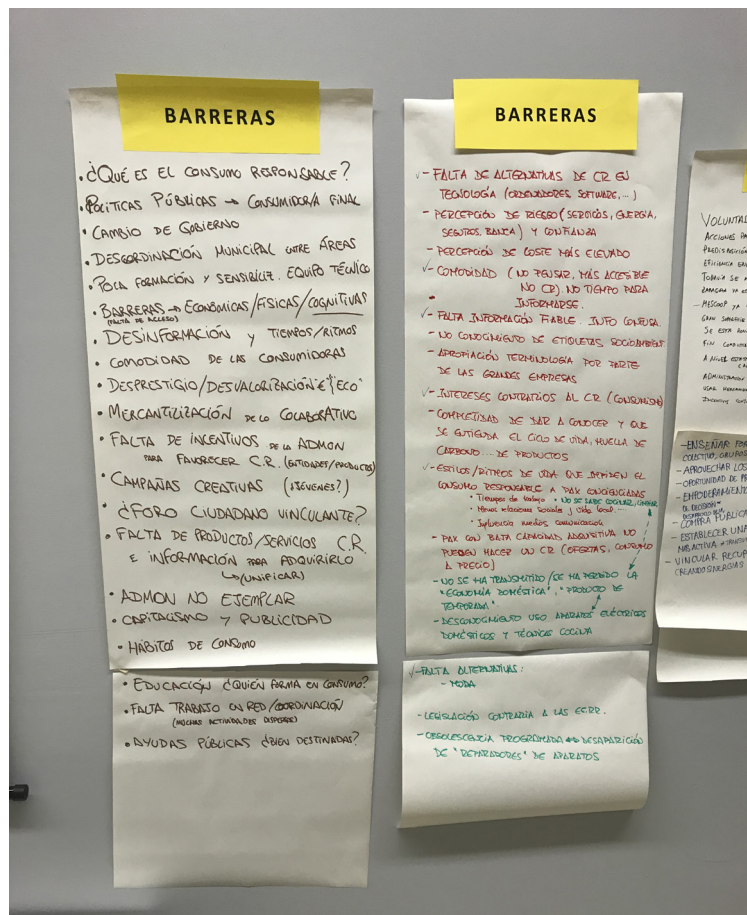 BARRERAS
• ¿QUÉ ES EL CONSUMO RESPONSABLE?
• POLÍTICAS PÚBLICAS → CONSUMIDOR/A FINAL
• CAMBIO DE GOBIERNO
• DESCORDINACIÓN MUNICIPAL ENTRE ÁREAS
• POCA FORMACIÓN Y SENSIBILIZ. EQUIPO TÉCNICO
• BARRERAS → ECONÓMICAS/FÍSICAS/COGNITIVAS
(FALTA DE ACCESO)
• DESINFORMACIÓN Y TIEMPOS/RITMOS
• COMODIDAD DE LAS CONSUMIDORAS
• DESPRESTIGIO/DESVALORIZACIÓN "ECO"
• MERCANTILIZACIÓN DE LO COLABORATIVO
• FALTA DE INCENTIVOS DE LA ADMON
PARA FAVORECER C.R. (ENTIDADES/PRODUCTOS)
• CAMPAÑAS CREATIVAS (¿JÓVENES?)
• ¿FORO CIUDADANO VINCULANTE?
• FALTA DE PRODUCTOS/SERVICIOS C.R.
E INFORMACIÓN PARA ADQUIRIRLO
↳ (UNIFICAR)
• ADMON NO EJEMPLAR
• CAPITALISMO Y PUBLICIDAD
• HÁBITOS DE CONSUMO
• EDUCACIÓN ¿QUIÉN FORMA EN CONSUMO?
• FALTA TRABAJO EN RED/COORDINACIÓN
(MUCHAS ACTIVIDADES DISPERSAS)
• AYUDAS PÚBLICAS ¿BIEN DESTINADAS?
BARRERAS
✓- FALTA DE ALTERNATIVAS DE CR EN
TECNOLOGÍA (ORDENADORES, SOFTWARE, ...)
- PERCEPCIÓN DE RIESGO (SERVICIOS, ENERGÍA,
SEGUROS, BANCA) Y CONFIANZA
- PERCEPCIÓN DE COSTE MÁS ELEVADO
✓- COMODIDAD (NO PENSAR, MÁS ACCESIBLE
NO CR) NO TIEMPO PARA
INFORMARSE.
✓- FALTA INFORMACIÓN FIABLE. INFO CONFUSA.
- NO CONOCIMIENTO DE ETIQUETAS SOCIOAMBIENT.
- APROPIACIÓN TERMINOLOGÍA POR PARTE
DE LAS GRANDES EMPRESAS
✓- INTERESES CONTRARIOS AL CR (CONSUMISMO)
- COMPLEJIDAD DE DAR A CONOCER Y QUE
SE ENTIENDA EL CICLO DE VIDA, HUELLA DE
CARBONO .... DE PRODUCTOS
✓- ESTILOS/RITMOS DE VIDA QUE IMPIDEN EL
CONSUMO RESPONSABLE A PAX CONCIENCIADAS
• Tiempos de trabajo • NO SE SABE COCINAR, LIMPIAR
• Menos relaciones sociales y vida local ....
• Influencia medios comunicación
- PAX CON BAJA CAPACIDAD ADQUISITIVA NO
PUEDEN HACER UN CR (OFERTAS, CONSUMO
A PRECIO)
- NO SE HA TRANSMITIDO / SE HA PERDIDO LA
"ECONOMÍA DOMÉSTICA", "PRODUCTO DE
TEMPORADA"
- DESCONOCIMIENTO USO APARATOS ELÉCTRICOS
DOMÉSTICOS Y TÉCNICAS COCINA
✓- FALTA ALTERNATIVAS:
- MODA
- LEGISLACIÓN CONTRARIA A LAS EE.RR.
- OBSOLESCENCIA PROGRAMADA ↔ DESAPARICIÓN
DE "REPARADORES" DE APARATOS
VOLUNTAD
ACCIONES
PREDISPOSICIÓN
EFICIENCIA
TODAVÍA SE
- MESCOOP YA
GRAN
SE ESTÁ
FIN
A NIVEL
ADMINISTRACIÓN
USAR
- ENSEÑAR
COLECTIVO, GRUPOS
- APROVECHAR LOS
- OPORTUNIDAD DE
- EMPODERAMIENTO
DE DECISIÓN
- COMPRA PÚBLICA
- ESTABLECER UNA
MAS ACTIVA
- VINCULAR
CREANDO SINERGIAS